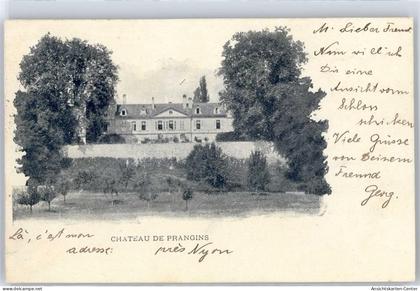 M. Lieber Freund
Nun will ich
Dir eine
Ansicht vom
Schloss
schicken
Viele Grüsse
von Deinem
Freund
Georg.
Là, c'est mon
adresse:
CHATEAU DE PRANGINS
près Nyon
Ansichtskarten-Center